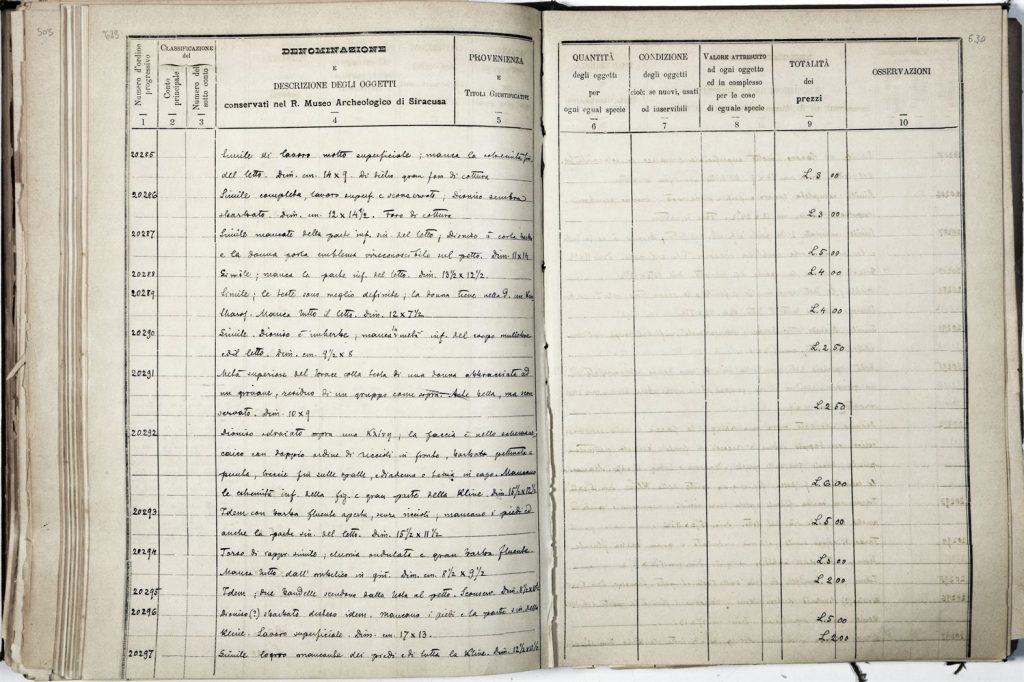 505
629
Numero d'ordine progressivo
CLASSIFICAZIONE
del
Conto principale
Numero del sotto conto
DENOMINAZIONE
E
DESCRIZIONE DEGLI OGGETTI
conservati nel R. Museo Archeologico di Siracusa
PROVENIENZA
E
TITOLI GIUSTIFICATIVI
1 2 3 4 5
20285 Simile di lavoro molto superficiale; manca la estremità
del letto. Dim. cm. 14 x 9. Di dietro gran foro di cottura
20286 Simile completa, lavoro superf. e sconservato; Dioniso sembra
sbarbato. Dim. cm. 12 x 14½. Foro di cottura
20287 Simile mancante della parte inf. sin. del letto; Dioniso à corta barba
e la donna porta emblema irriconoscibile sul petto. Dim. 11 x 14
20288 Simile; manca la parte inf. del letto. Dim. 13½ x 12½.
20289 Simile; le teste sono meglio definite; la donna tiene nella d. un
Manca tutto il letto. Dim. 12 x 7½
20290 Simile. Dioniso è imberbe, manca la metà inf. del corpo muliebre
ed il letto. Dim. cm. 9½ x 8
20291 Metà superiore del torace colla testa di una donna abbracciata ad
un giovane, residuo di un gruppo come sopra. Arte bella, ma scon
servato. Dim. 10 x 9
20292 Dioniso sdraiato sopra una Κλίνη; la faccia è nello schema ar-
caico con doppio ordine di riccioli in fronte, barbata pettinata a
punta, treccie giù sulle spalle, e diadema o benda in capo. Mancano
le estremità inf. della fig. e gran parte della Kline. Dim. 16½ x 12½
20293 Idem con barba fluente aperta, senza riccioli; mancano i piedi ed
anche la parte sin. del letto. Dim. 15½ x 11½
20294 Torso di rappr. simile; chioma ondulata e gran barba fluente.
Manca tutto dall'ombelico in giù. Dim. cm. 8½ x 9½
20295 Idem; due bandelle scendono dalla testa al petto. Sconserv. Dim.
20296 Dioniso (?) sbarbato disteso idem. mancano i piedi e la parte sin. della
Kline. Lavoro superficiale. Dim. cm. 17 x 13.
20297 Simile logoro mancante dei piedi e di tutta la Kline. Dim.
630
QUANTITÀ
degli oggetti
per
ogni egual specie
CONDIZIONE
degli oggetti
cioè: se nuovi, usati
od inservibili
VALORE ATTRIBUITO
ad ogni oggetto
ed in complesso
per le cose
di eguale specie
TOTALITÀ
dei
prezzi
OSSERVAZIONI
6 7 8 9 10
L. 3 00
L. 3 00
L. 5 00
L. 4 00
L. 4 00
L. 2 50
L. 2 50
L. 6 00
L. 5 00
L. 3 00
L. 2 00
L. 5 00
L. 2 00